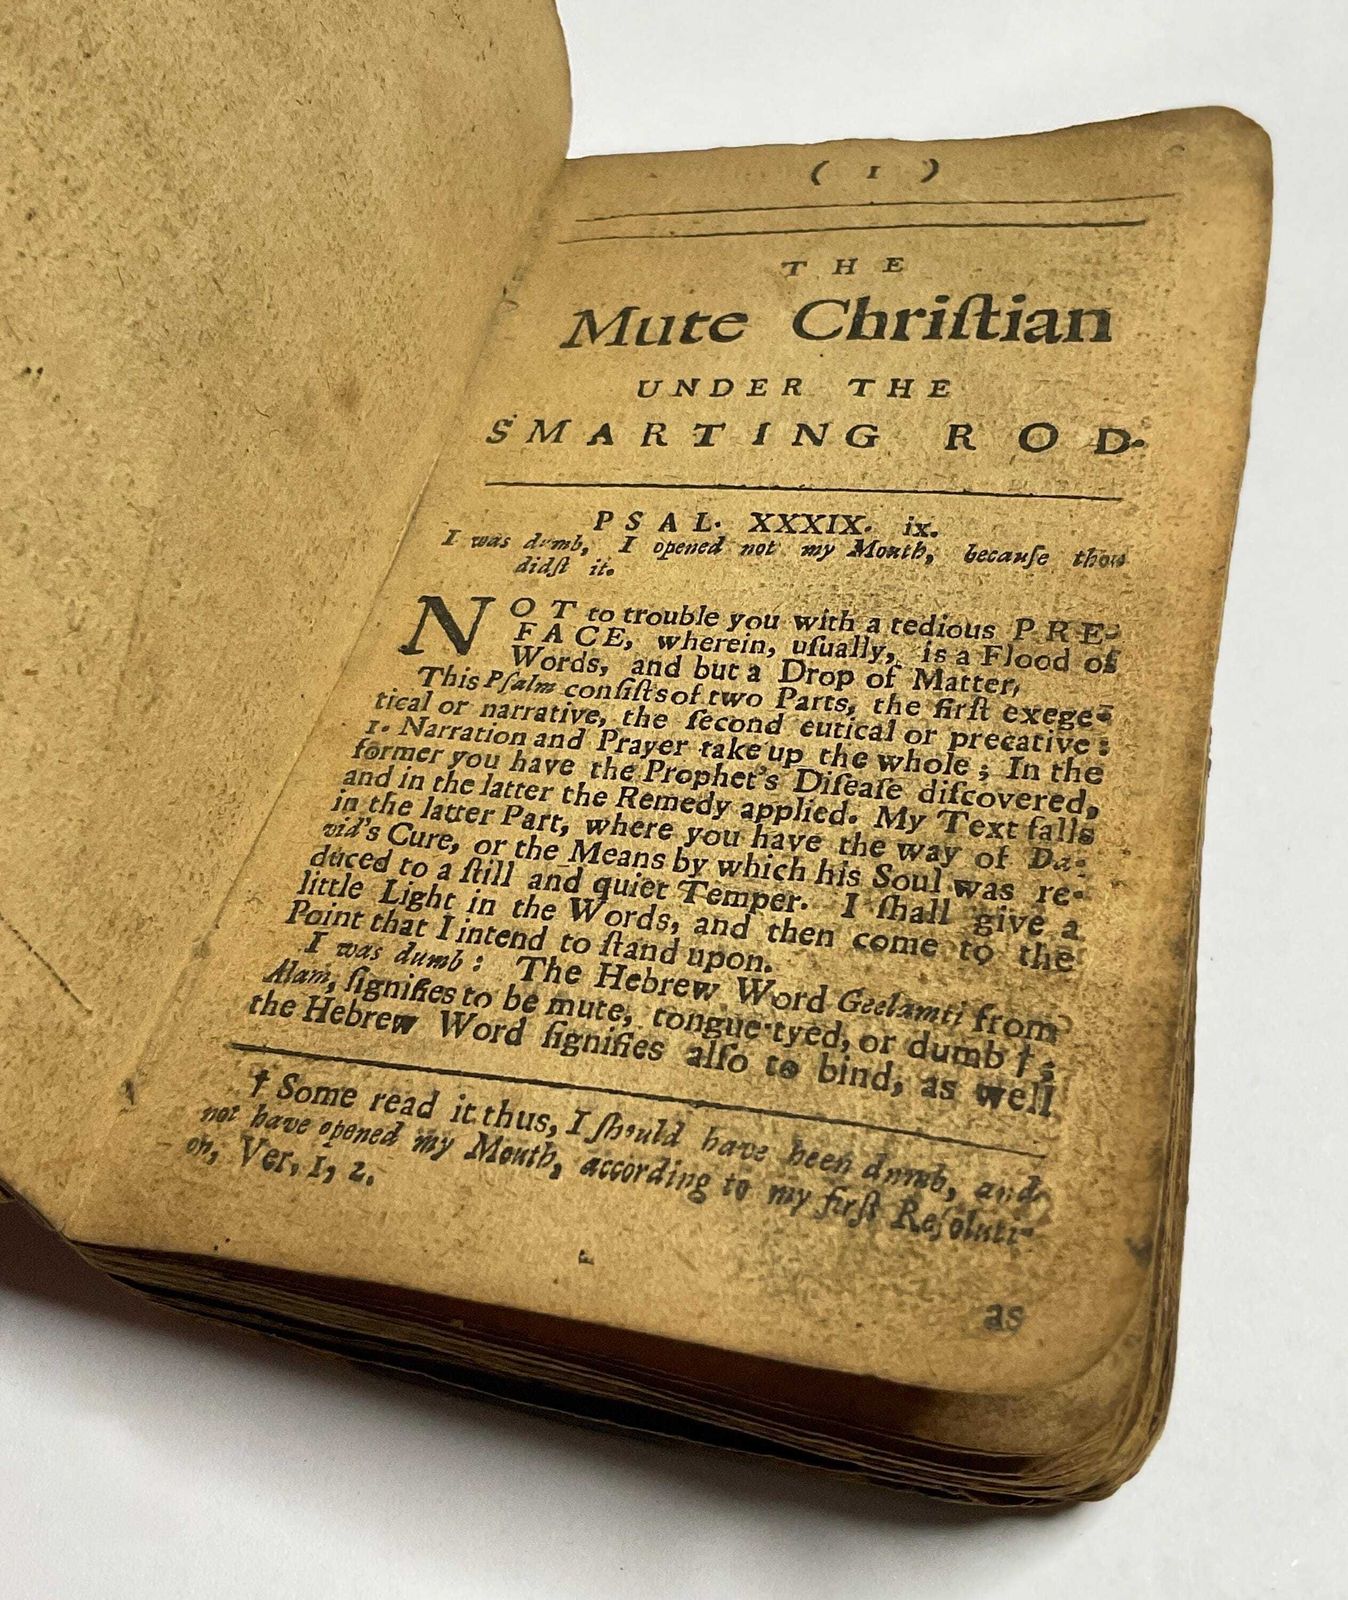 ( 1 )
THE
Mute Chriſtian
UNDER THE
SMARTING ROD.
PSAL. XXXIX. ix.
I was dumb, I opened not my Mouth, becauſe thou
didſt it.
NOT to trouble you with a tedious PRE-
FACE, wherein, uſually, is a Flood of
Words, and but a Drop of Matter,
This Pſalm conſiſts of two Parts, the firſt exege-
tical or narrative, the ſecond eutical or precative:
1. Narration and Prayer take up the whole; In the
former you have the Prophet's Diſeaſe diſcovered,
and in the latter the Remedy applied. My Text falls
in the latter Part, where you have the way of Da-
vid's Cure, or the Means by which his Soul was re-
duced to a ſtill and quiet Temper. I ſhall give a
little Light in the Words, and then come to the
Point that I intend to ſtand upon.
I was dumb: The Hebrew Word Geelamti from
Alam, ſignifies to be mute, tongue-tyed, or dumb †;
the Hebrew Word ſignifies alſo to bind, as well
† Some read it thus, I ſhould have been dumb, and
not have opened my Mouth, according to my firſt Reſoluti-
on, Ver, 1, 2.
as